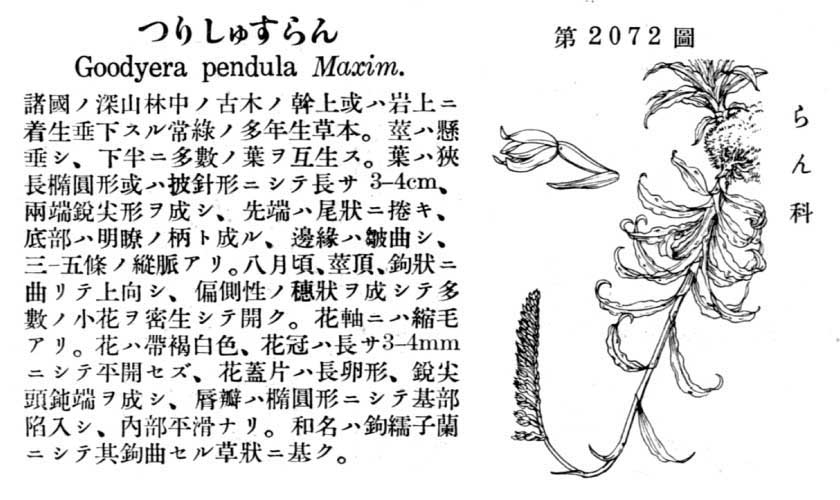 つりしゅすらん
Goodyera pendula Maxim.
諸國ノ深山林中ノ古木ノ幹上或ハ岩上ニ
着生垂下スル常綠ノ多年生草本。莖ハ懸
垂シ、下半ニ多數ノ葉ヲ互生ス。葉ハ狹
長橢圓形或ハ披針形ニシテ長サ 3-4cm、
兩端銳尖形ヲ成シ、先端ハ尾狀ニ捲キ、
底部ハ明瞭ノ柄ト成ル、邊緣ハ皺曲シ、
三-五條ノ縱脈アリ。八月頃、莖頂、鉤狀ニ
曲リテ上向シ、偏側性ノ穗狀ヲ成シテ多
數ノ小花ヲ密生シテ開ク。花軸ニハ縮毛
アリ。花ハ帶褐白色、花冠ハ長サ3-4mm
ニシテ平開セズ、花蓋片ハ長卵形、銳尖
頭鈍端ヲ成シ、唇瓣ハ橢圓形ニシテ基部
陷入シ、內部平滑ナリ。和名ハ鉤繻子蘭
ニシテ其鉤曲セル草狀ニ基ク。
第2072圖
らん科